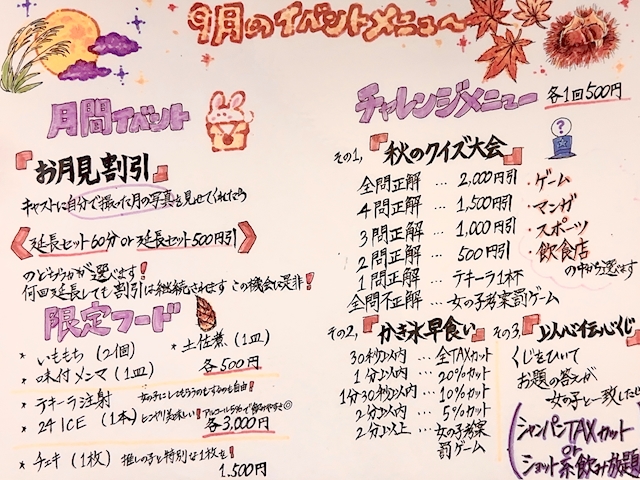 9月のイベントメニュー
月間イベント
『お月見割引』
キャストに自分で撮った月の写真を見せてくれたら
《延長セット60分 or 延長セット500円引》
のどちらかが選べます!
何回延長しても割引は継続されます この機会に是非!
限定フード
* いももち (2個)
* 土佐煮 (1皿)
* 味付メンマ (1皿)
各500円
* テキーラ注射 女の子にしてもらうのもするのも自由!
* 24 ICE (1本) ヒンヤリ美味しい!
各3,000円
* チェキ (1枚) 推しの子と特別な1枚を!
1.500円
チャレンジメニュー 各1回500円
その1,『秋のクイズ大会』
全問正解 … 2,000円引
4問正解 … 1,500円引
3問正解 … 1,000円引
2問正解 … 500円引
1問正解 … テキーラ1杯
全問不正解 … 女の子考案罰ゲーム
・ゲーム
・マンガ
・スポーツ
・飲食店
の中から選べます
その2,『かき氷早食い』
30秒以内 … 全TAXカット
1分以内 … 20%カット
1分30秒以内 … 10%カット
2分以内 … 5%カット
2分以上 … 女の子考案
罰ゲーム
その3,『以心伝心くじ』
くじをひいて
お題の答えが
女の子と一致したら
シャンパンTAXカット
or
ショット系飲み放題